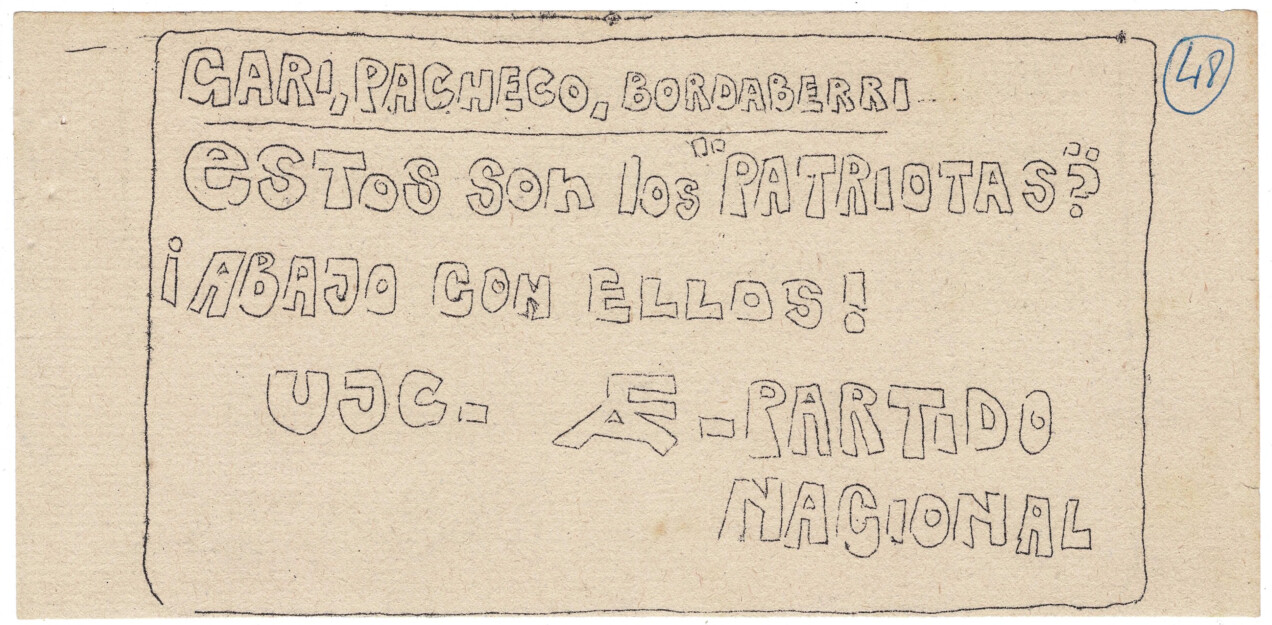 GARI, PACHECO, BORDABERRI
48
estos son los "PATRIOTAS"?
¡ABAJO CON ELLOS!
UJC - Æ - PARTIDO
NACIONAL